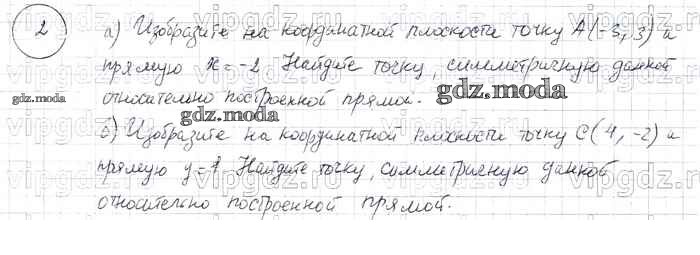 2
а) Изобразите на координатной плоскости точку A(-5; 3) и
прямую x = -2. Найдите точку, симметричную данной
относительно построенной прямой.
б) Изобразите на координатной плоскости точку C(4, -2) и
прямую y = 1. Найдите точку, симметричную данной
относительно построенной прямой.
gdz.moda
gdz.moda
vipgdz.ru